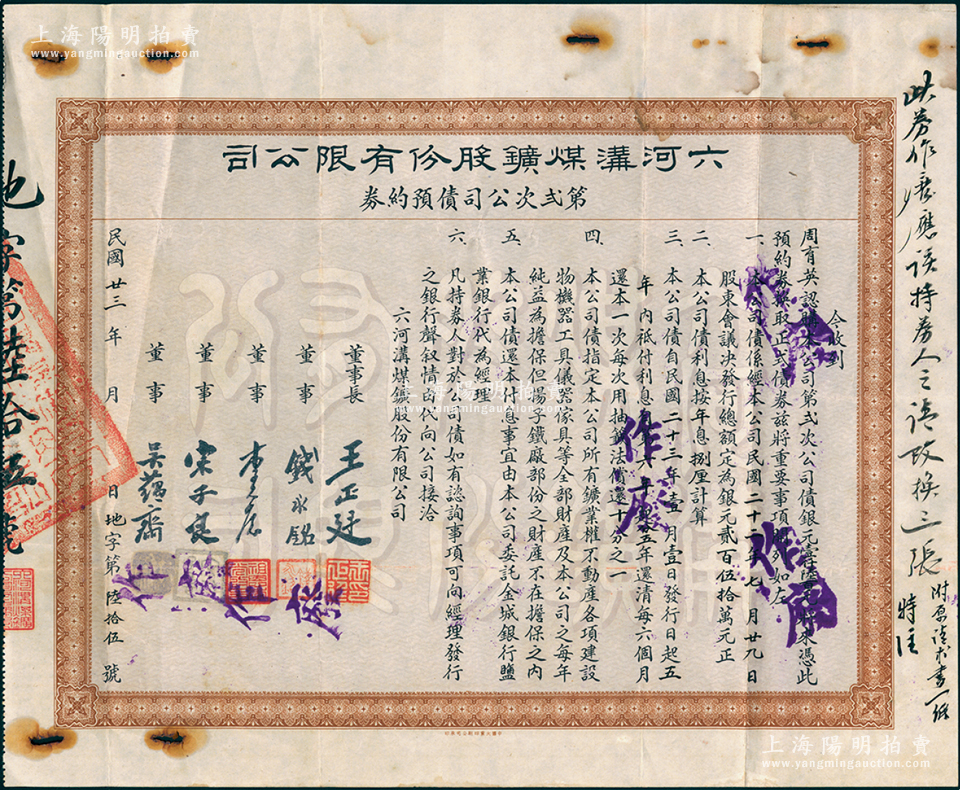 上海陽明拍賣
www.yangmingauction.com
上海陽明拍賣
www.yangmingauction.com
六河溝煤鑛股份有限公司
第弍次公司債預約券
今收到
周育英認購本公司第弍次公司債銀元壹陸 將來憑此
預約券換取正式債券茲將重要事項 列如左
一、本公司債係經本公司民國二十 年七月廿九日
股東會議決發行總額定為銀元貳百伍拾萬元正
二、本公司債利息按年息捌厘計算
三、本公司債自民國二十三年壹月壹日發行日起五
年內祗付利息 六 五年還清每六個月
還本一次每次用抽籤法償還十分之一
四、本公司債指定本公司所有鑛業權不動產各項建設
物機器工具儀器傢具等全部財產及本公司之每年
純益為擔保但揚子鐵廠部份之財產不在擔保之內
五、本公司債還本付息事宜由本公司委託金城銀行鹽
業銀行代為經理
六、凡持券人對於公司債如有認詢事項可向經理發行
之銀行聲叙情函代向公司接洽
六河溝煤鑛股份有限公司
董事長 王正廷
董事 錢永銘
董事 李
董事 宋子良
董事 吳蘊齋
民國廿三年 月 日 地字第陸拾伍號
地字第陸拾伍號
作廢
作廢
作廢
作廢
作廢
此券作廢應該持券人之請改換三張
附原請求書一紙
特註
上海陽明拍賣
www.yangmingauction.com
上海陽明拍賣
www.yangmingauction.com